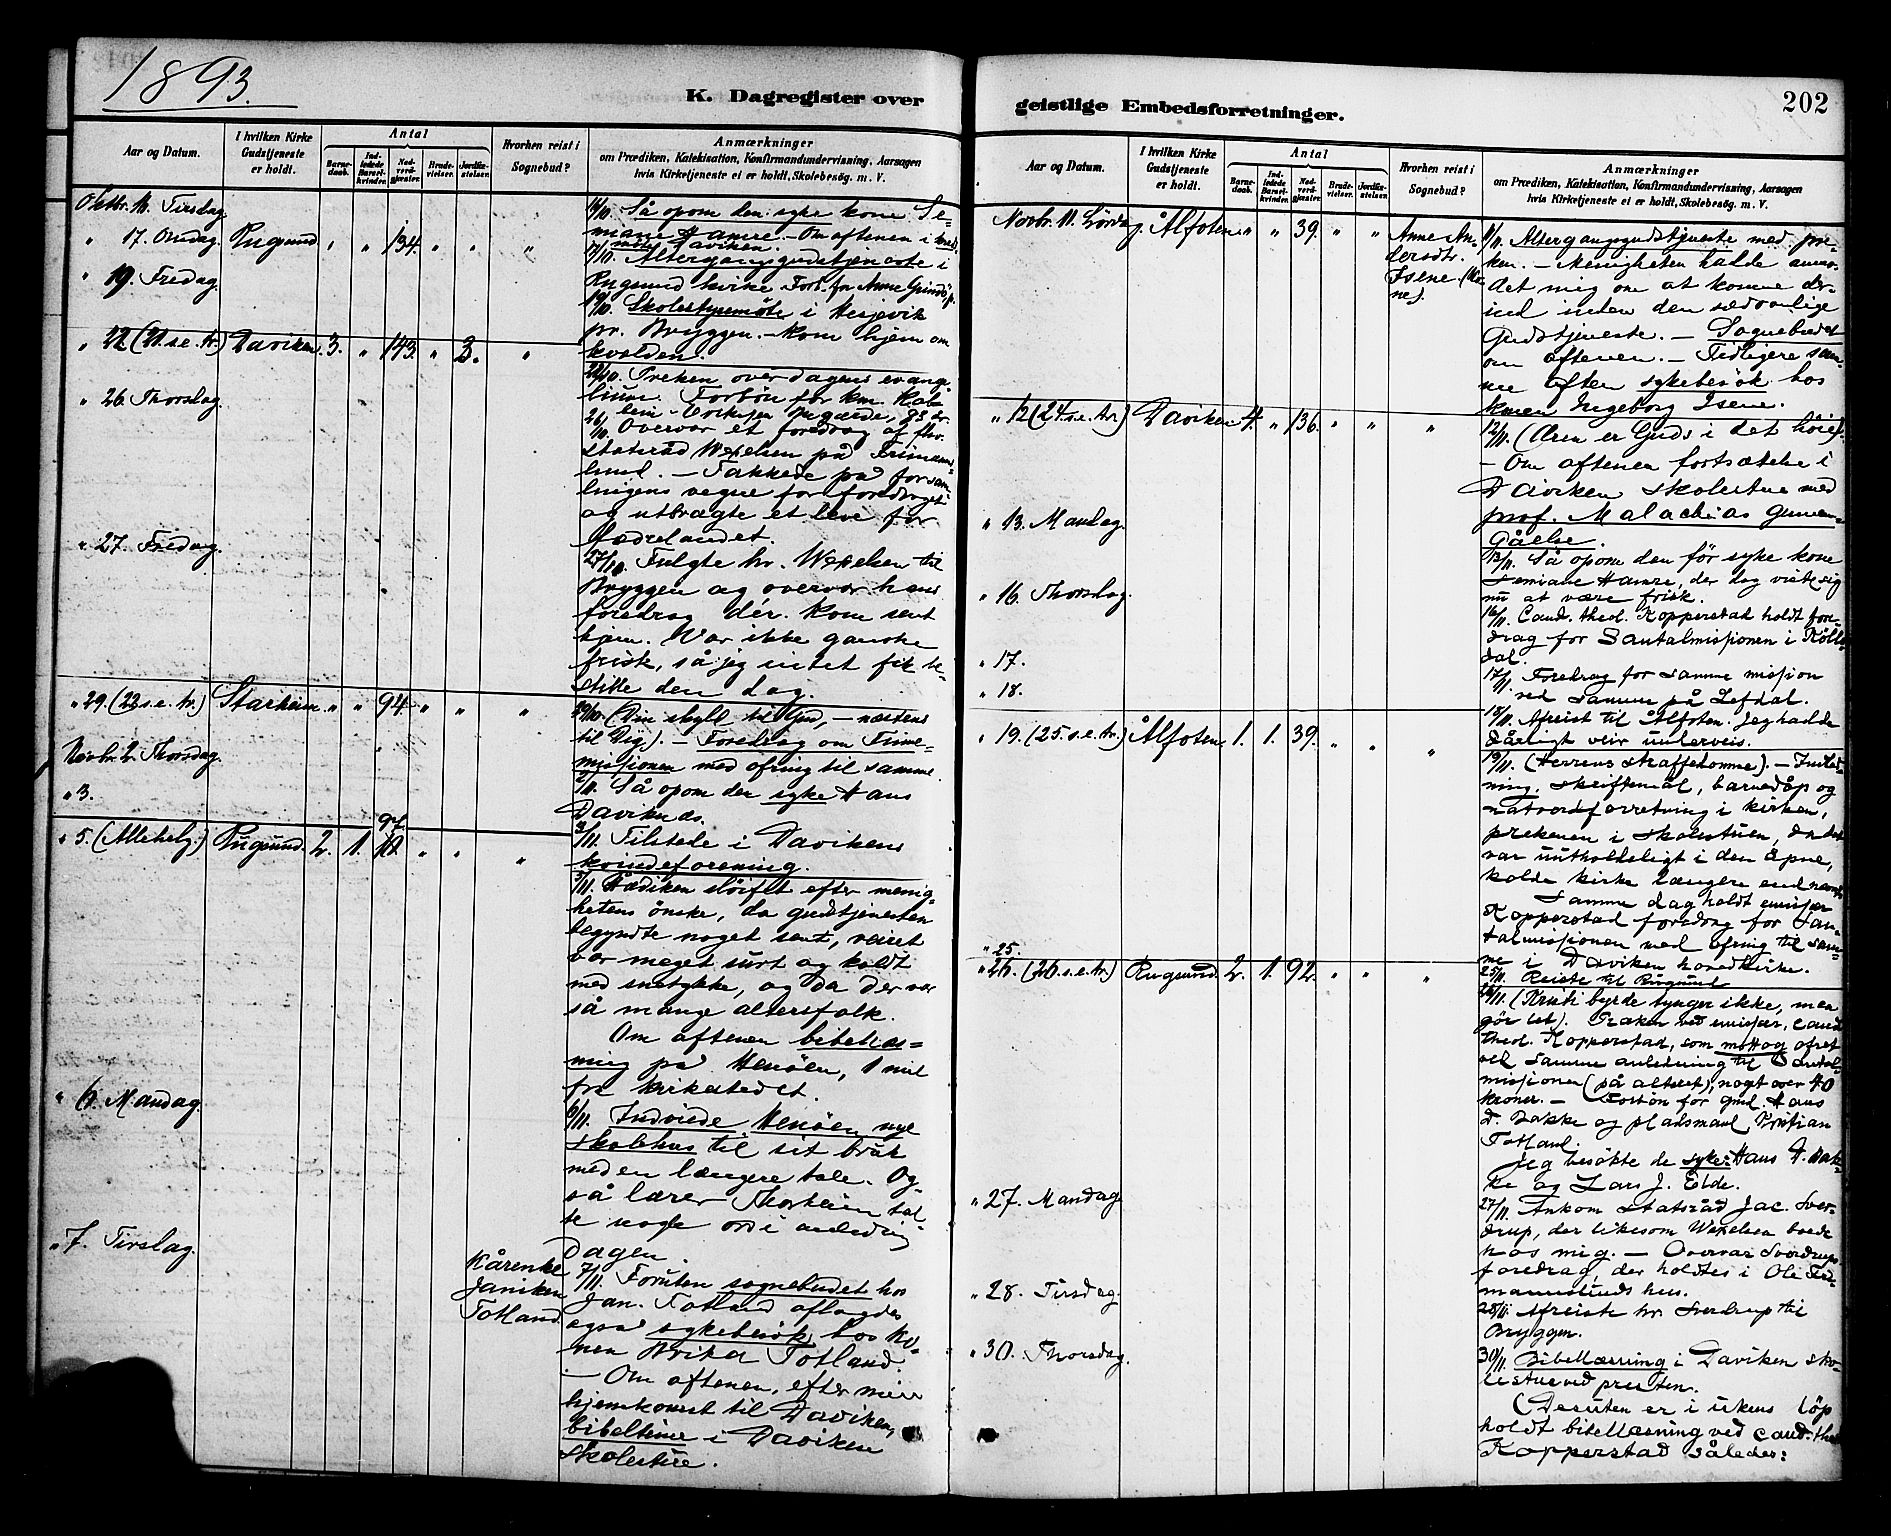 1893.
K. Dagregister over
Aar og Datum.
I hvilken Kirke Gudstjeneste er holdt.
Antal
Barnedaab.
Indledede Barselkvinder.
Nadverdgjæster.
Brudevielser.
Jordfæstelser.
Hvorhen reist i Sognebud?
Anmærkninger
om Prædiken, Katekisation, Konfirmandundervisning, Aarsagen
hvis Kirketjeneste ei er holdt, Skolebesøg. m. V.
Oktbr. 16. Tirsdag
" 17. Onsdag. Rugsund " " 134. " " "
" 19. Fredag.
" 22 (21. s. e. tr.) Daviken. 3. " 143. " 3. "
" 26. Thorsdag.
" 27. Fredag.
" 29. (22 s. e. tr.) Starheim. " " 94. " " "
Novbr. 2. Thorsdag.
" 3.
97.
" 5. (Allehelg.) Rugsund. 2. 1. " " "
" 6. Mandag.
" 7. Tirsdag.
Kårenke
Janiken
Totland.
16/10. Så opom den syke kone Se-
miane Hamre. Om aftenen i
møte Daviken.
17/10. Altergangsgudstjeneste i
Rugsund kirke. Forb. for Anne
19/10. Skolestyremøte i
pr. Bryggen. kom hjem om
kvelden.
22/10. Preken over dagens evange-
lium. Forbön for
26/10. Overvar et foredrag af fhv.
statsråd Wexelsen på Friman-
lund. – Takkede på forsam-
lingens vegne for foredraget
og utbragte et leve for
fædrelandet.
27/10. Fulgte hr. Wexelsen til
Bryggen og overvar hans
foredrag dér. Kom sent
hjem. Var ikke ganske
frisk, så jeg intet fik be-
stille den dag.
29/10. (Din skyld til Gud, – næstens
til Dig). – Foredrag om Finne-
missionen med ofring til samme.
2/11. Så opom den syke Hans
Daviknæs.
3/11. Tilstede i Davikens
kvindeforening.
5/11. Prædiken sløifet efter menig-
hetens önske, da gudstjenesten
begyndte noget sent, veiret
var meget surt og koldt
med snetykke, og da der var
så mange altersfolk.
Om aftenen bibellæs-
ning på Henöen, 1 mil
fra kirkestedet.
6/11. Indviede Henöen nye
skolehus til sit bruk
med en længere tale. Og-
så lærer Thorheim tal-
te nogle ord i anledning
Dagen
7/11. Foruten sognebudet hos
Jan. Totland aflagdes
også sykebesök hos ko-
nen Totland.
– Om aftenen, efter min
hjemkomst til Daviken,
bibeltime i Daviken
skolestue.
geistlige Embedsforretninger.
202
Aar og Datum.
I hvilken Kirke Gudstjeneste er holdt.
Antal
Barnedaab.
Indledede Barselkvinder.
Nadverdgjæster.
Brudevielser.
Jordfæstelser.
Hvorhen reist i Sognebud?
Anmærkninger
om Prædiken, Katekisation, Konfirmandundervisning, Aarsagen
hvis Kirketjeneste ei er holdt, Skolebesøg. m. V.
Novbr. 11. Lördag Ålfoten. " " 39. " "
Anne An-
dersdtr.
Isene. (ko-
ne).
" 12 (24. s. e. tr.) Daviken 4. " 136. " " "
" 13. Mandag.
" 16. Thorsdag.
" 17.
" 18.
" 19. (25. s. e. tr.) Ålfoten. 1. 1. 39. " " "
" 25.
" 26. (26. s. e. tr.) Rugsund. 2. 1. 92. " " "
" 27. Mandag
" 28. Tirsdag.
" 30. Thorsdag.
11/11. Altergangsgudstjeneste med pre-
ken. – Menigheten hadde anmo-
det mig om at komme der-
ind inden den sedvanlige
Gudstjeneste. – Sognebudet
om aftenen. – Tidligere sam-
me aften sykebesök hos
konen Ingeborg Isene.
12/11. (Æren er Guds i det höie).
– Om aftenen fortsættelse i
Daviken skolestue med
prof. Malachias gjennem-
gåelse.
13/11. Så opom den för syke kone
Semiane Hamre, der dog viste sig
nu at være frisk.
16/11. Cand. theol. Kopperstad holdt fore-
drag for Santalmissionen i
dal.
17/11. Foredrag for samme mission
ved samme på Lefdal.
18/11. Afreist til Ålfoten. Jeg hadde
dårligt veir underveis.
19/11. (Herrens straffedomme). – Indled-
ning, skriftemål, barnedåp og
natvordforretning i kirken,
prekenen i skolestuen, da det
var uutholdeligt i den åpne,
kolde kirke længere end
Samme dag holdt emissær
Kopperstad foredrag for San-
talmissionen med ofring til sam-
me i Daviken hovedkirke.
25/11. Reiste til Rugsund
26/11. (Kristi byrde tynger ikke, men
gör let). Præken ved emissær, cand.
theol. Kopperstad, som mottog ofret
ved samme anledning til Santal-
missionen (på alteret), noget over 40
kroner. – Forbön for gmd. Hans
D. Bakke og pladsmand Kristian
Totland.
Jeg besökte de syke: Hans D. Bak-
ke og Lars J. Elde.
27/11. Ankom statsråd Jac. Sver-
drup, der likesom Wexelsen boede
hos mig. – Overvar Sverdrups
foredrag, der holdtes i Ole Fri-
manslunds hus.
28/11. Afreiste hr. Sverdrup til
Bryggen.
30/11. Bibellæsning i Daviken sko-
lestue ved presten.
(Desuten er i ukens löp
holdt bibellæsning ved cand. theol.
Kopperstad således: